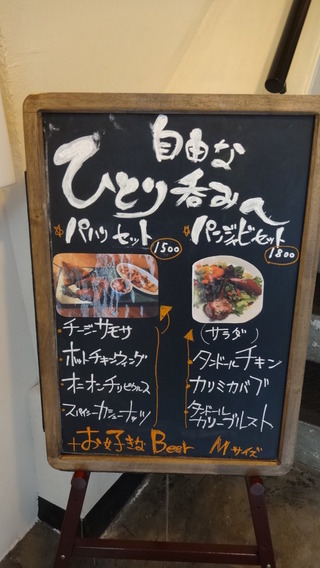 自由な
ひとり呑みへ
☆パハリセット 1500
・チージーサモサ
・ホットチキンウィング
・オニオンチリピクルス
・スパイシーカシューナッツ
☆パンジャビセット 1800
(サラダ)
・タンドールチキン
・カリミカバブ
・タンドールカリーブルスト
+お好きなBeer Mサイズ